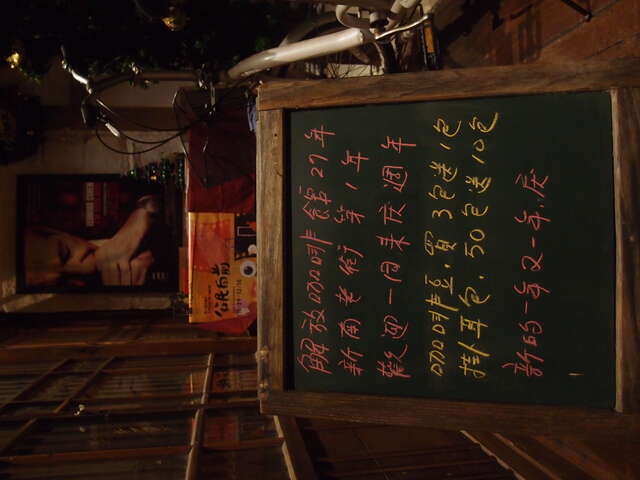 LEONARD COHEN
公民向前
解放咖啡館27年
新南老街第1年
歡迎一同来庆週年
咖啡豆.買3包送1包
掛耳包.50包送10包
新的一年又一年.庆